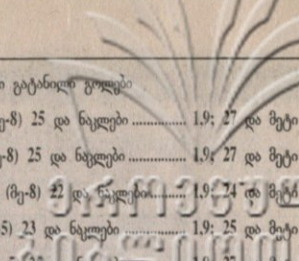 ი გატანილი გოლები
ე-8) 25 და ნაკლები ............... 1.9; 27 და მეტი
-8) 25 და ნაკლები ............... 1.9; 27 და მეტი
(მე-8) 22 და ნაკლები......... 1.9; 24 და მეტი
5) 23 და ნაკლები ............... 1.9; 25 და მეტი
ეროვნულ